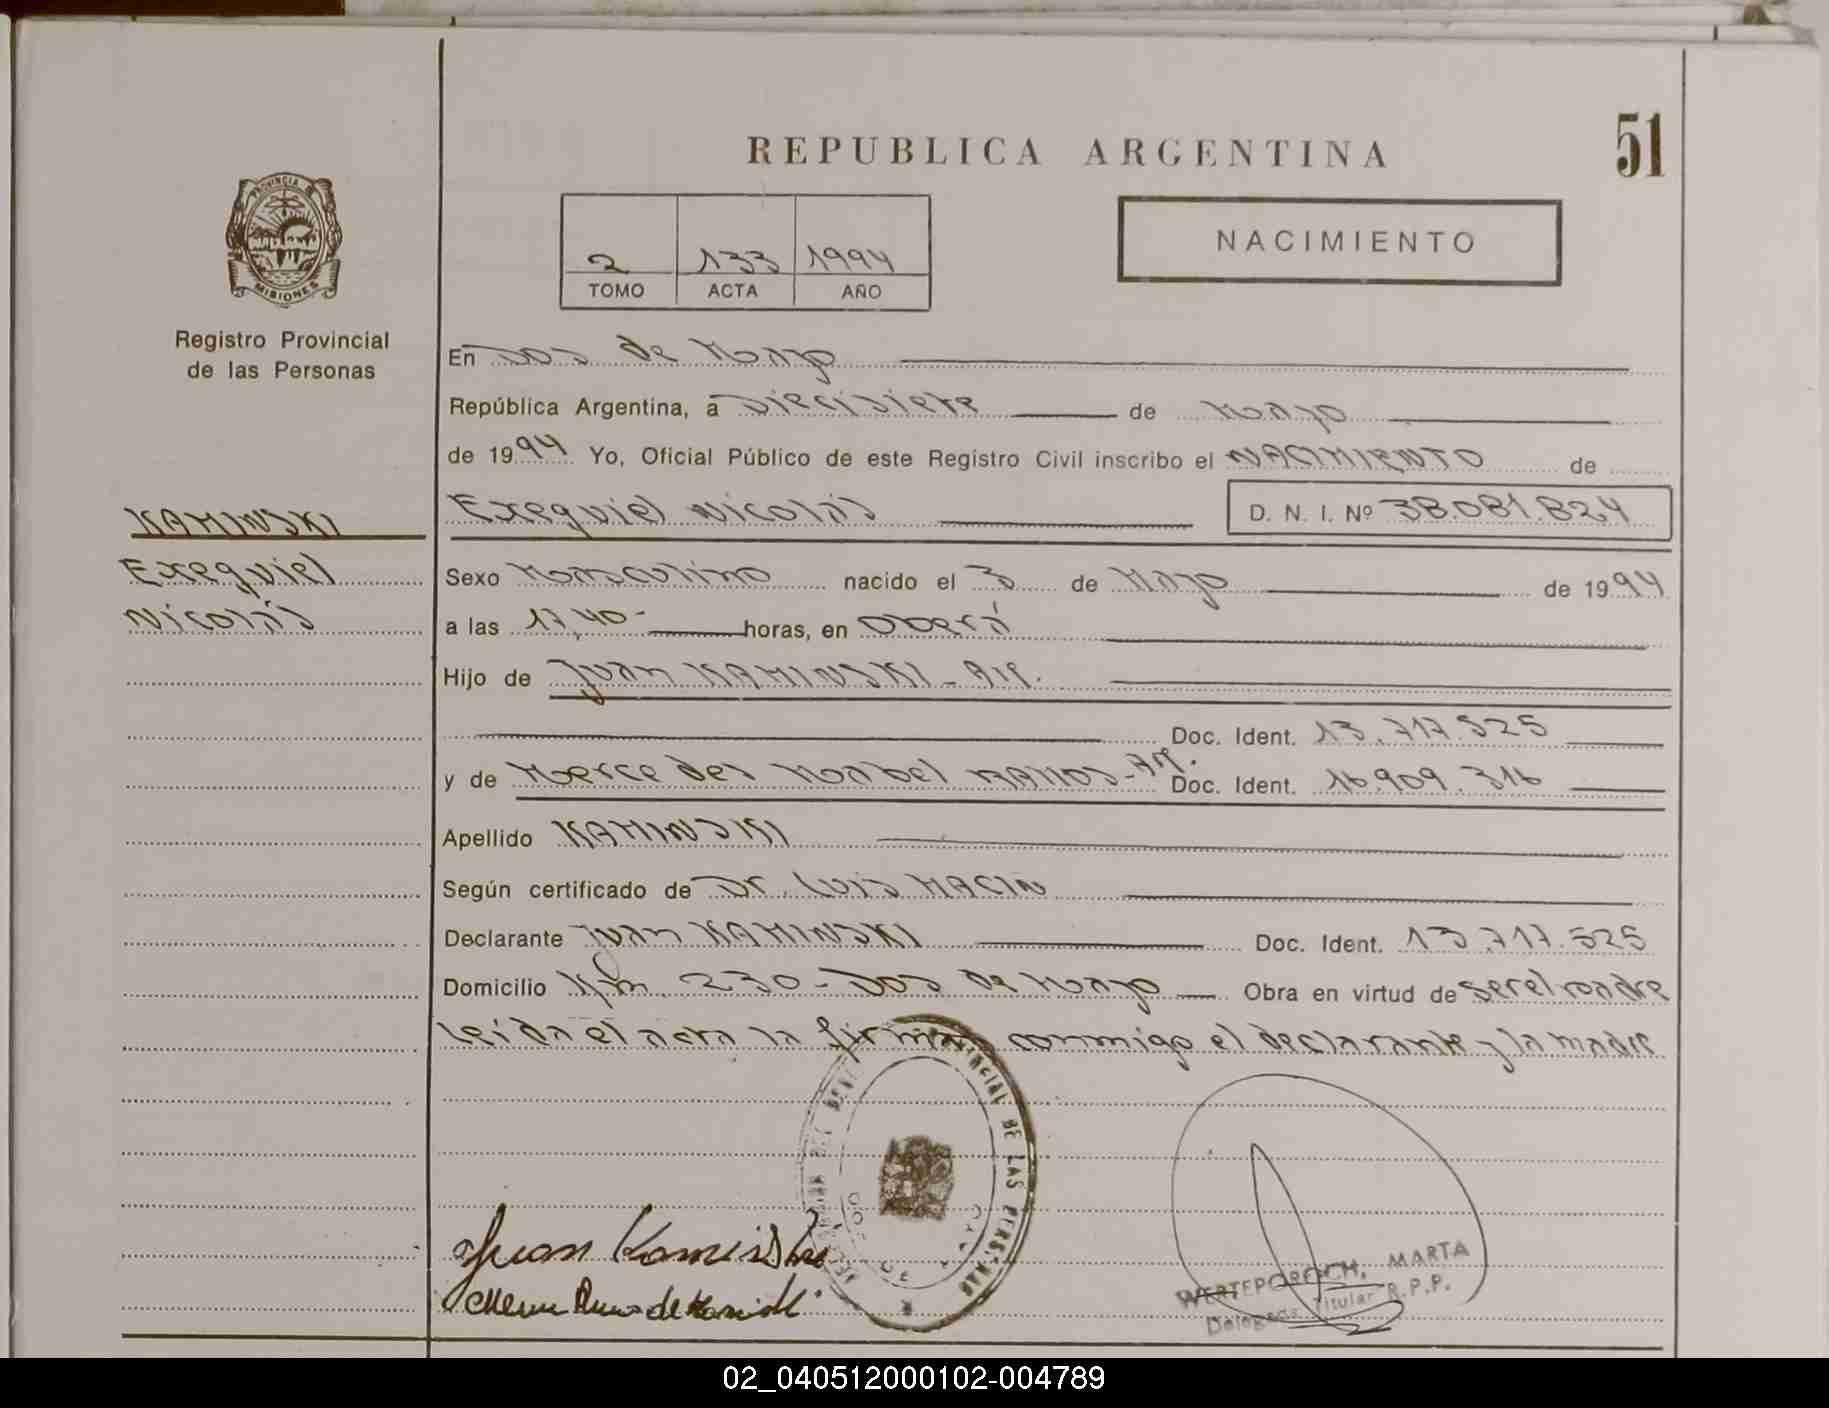 REPUBLICA ARGENTINA
51
NACIMIENTO
2 133 1994
TOMO ACTA AÑO
PROVINCIA DE
MISIONES
Registro Provincial
de las Personas
KAMINSKI
Exequiel
Nicolás
En Dos de Mayo
República Argentina, a Diecisiete de Mayo
de 1994 Yo, Oficial Público de este Registro Civil inscribo el NACIMIENTO de
Exequiel Nicolás D. N. I. Nº 38.081.824
Sexo Masculino nacido el 3 de Mayo de 1994
a las 17,40- horas, en Oberá
Hijo de Juan KAMINSKI - Ar.
Doc. Ident. 13.717.525
y de Mercedes Mabel RAMOS - Ar. Doc. Ident. 16.909.316
Apellido KAMINSKI
Según certificado de Dr. Luis MACIN
Declarante Juan KAMINSKI Doc. Ident. 13.717.525
Domicilio Km. 230 - Dos de Mayo Obra en virtud de ser el padre
Leída el acta la firman conmigo el declarante y la madre
DE LAS PERSONAS
Juan Kaminski
MARTA
Titular R.P.P.
02_040512000102-004789